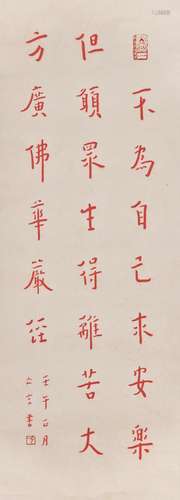 不為自己求安樂
但願眾生得離苦大
方廣佛華嚴經
壬午六月